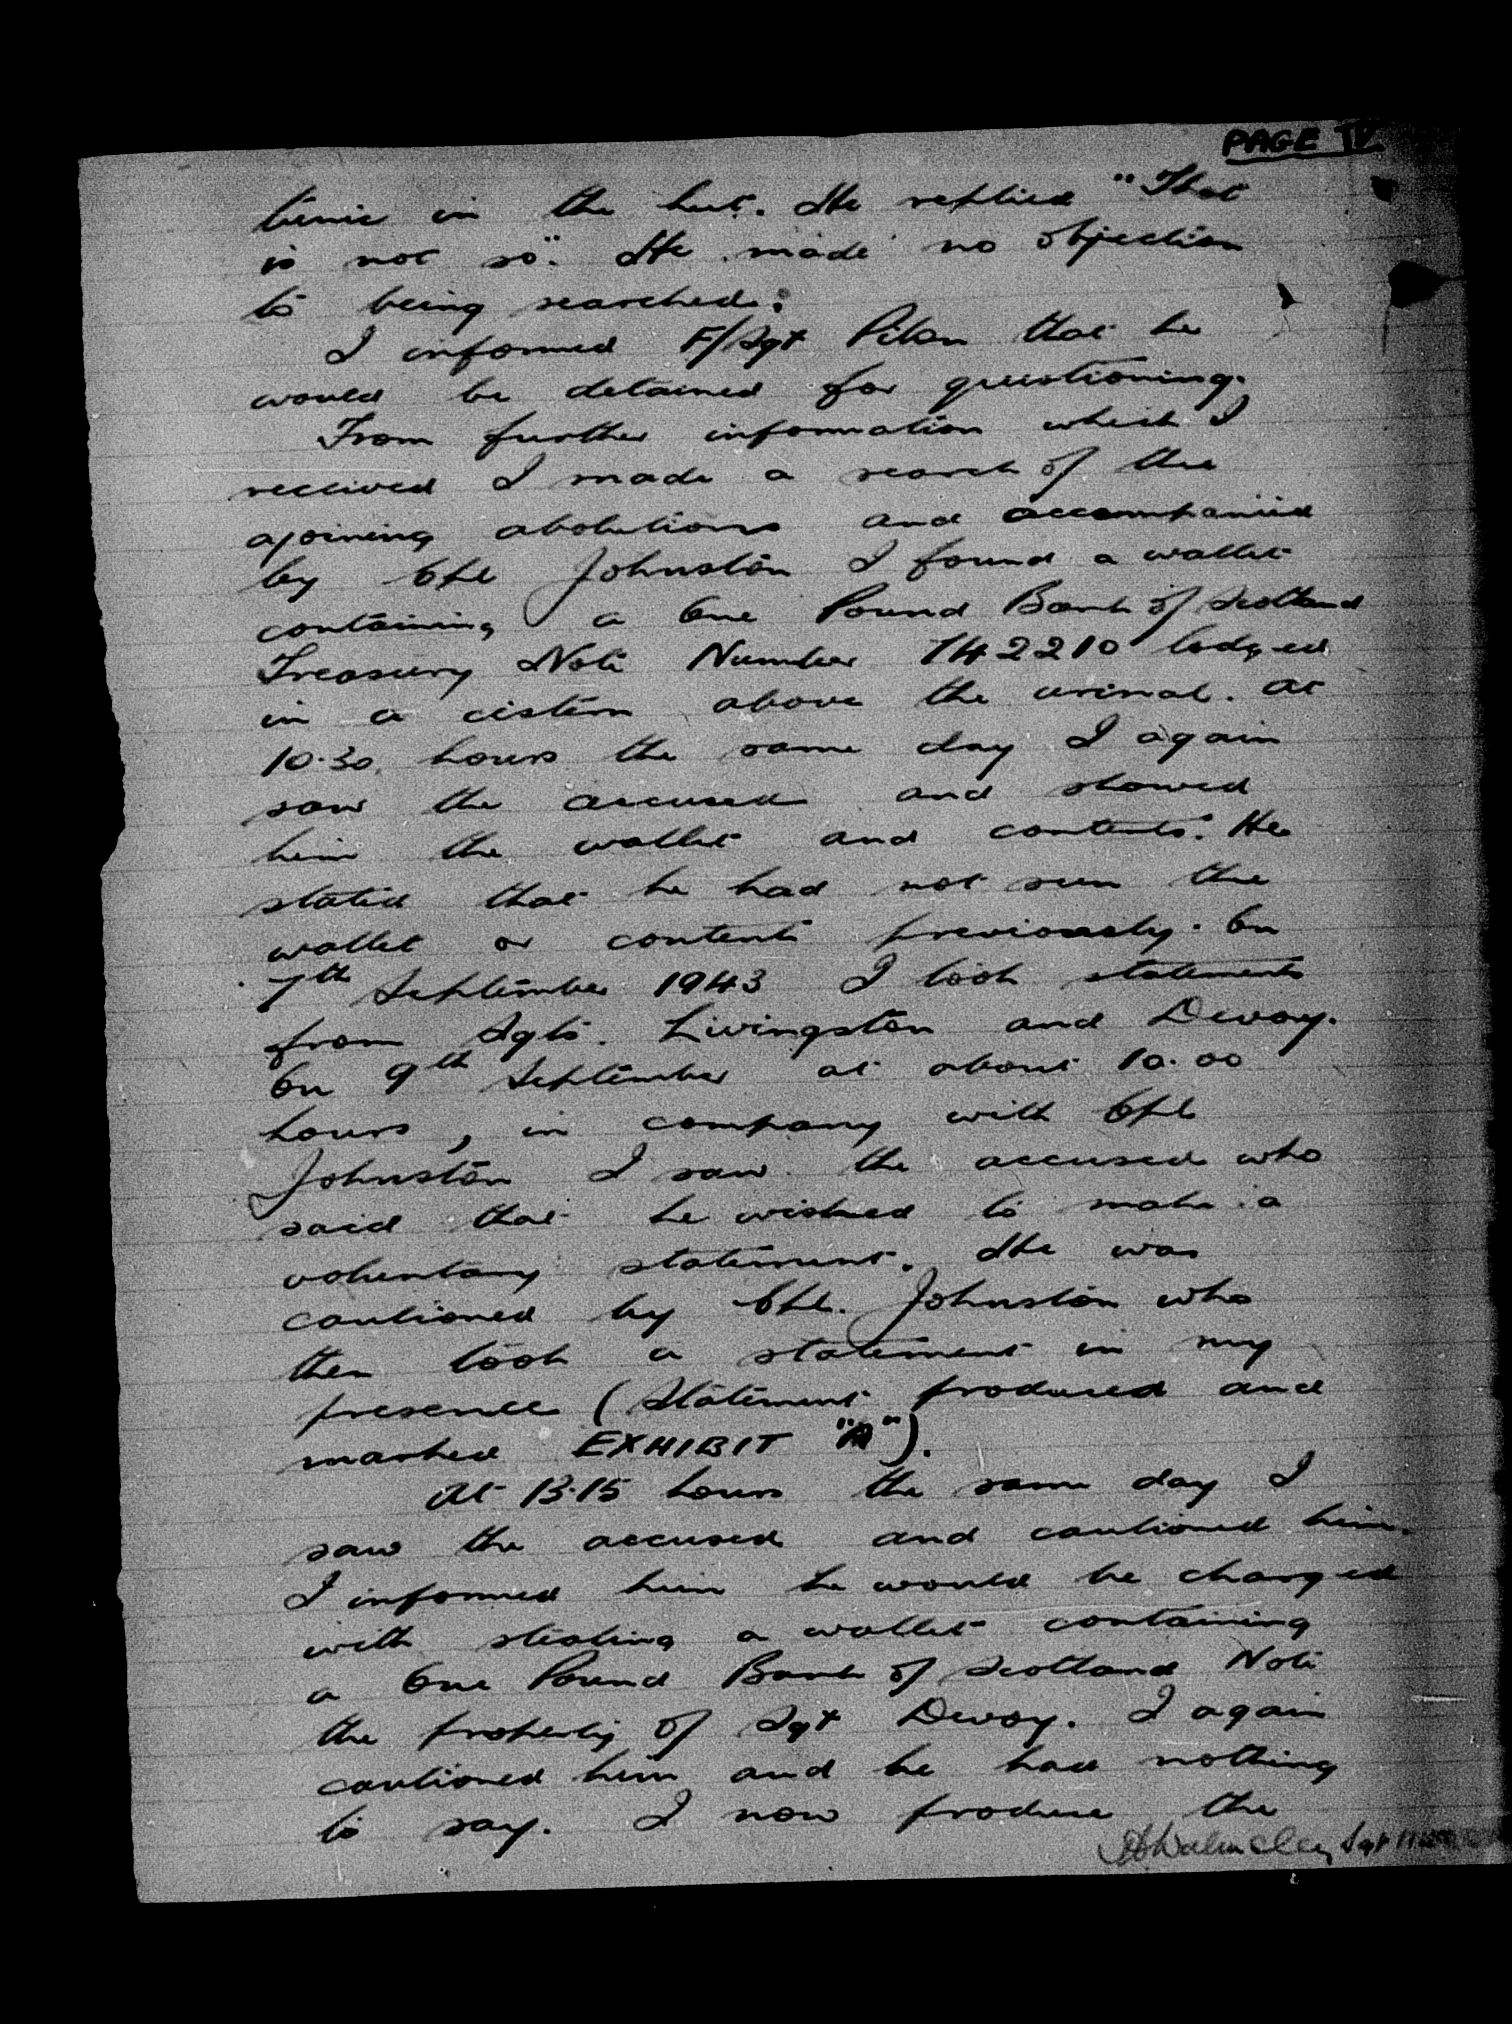 PAGE IV.
tunic in the hut. He replied "That
is not so". He made no objection
to being searched.
I informed F/Sgt Pilon that he
would be detained for questioning.
From further information which I
received I made a search of the
ajoining abolutions and accompanied
by Cpl Johnston I found a wallet
containing a One Pound Bank of Scotland
Treasury Note Number 742210 lodged
in a cistern above the urinal. At
10.30 hours the same day I again
saw the accused and showed
him the wallet and contents. He
stated that he had not seen the
wallet or contents previously. On
7th September 1943 I took statements
from Sgts. Livingston and Devoy.
On 9th September at about 10.00
hours, in company with Cpl
Johnston I saw the accused who
said that he wished to make a
voluntary statement. He was
cautioned by Cpl. Johnston who
then took a statement in my
presence (Statement produced and
marked EXHIBIT "A").
At 13.15 hours the same day I
saw the accused and cautioned him.
I informed him he would be charged
with stealing a wallet containing
a One Pound Bank of Scotland Note
the property of Sgt Devoy. I again
cautioned him and he had nothing
to say. I now produce the
Sgt